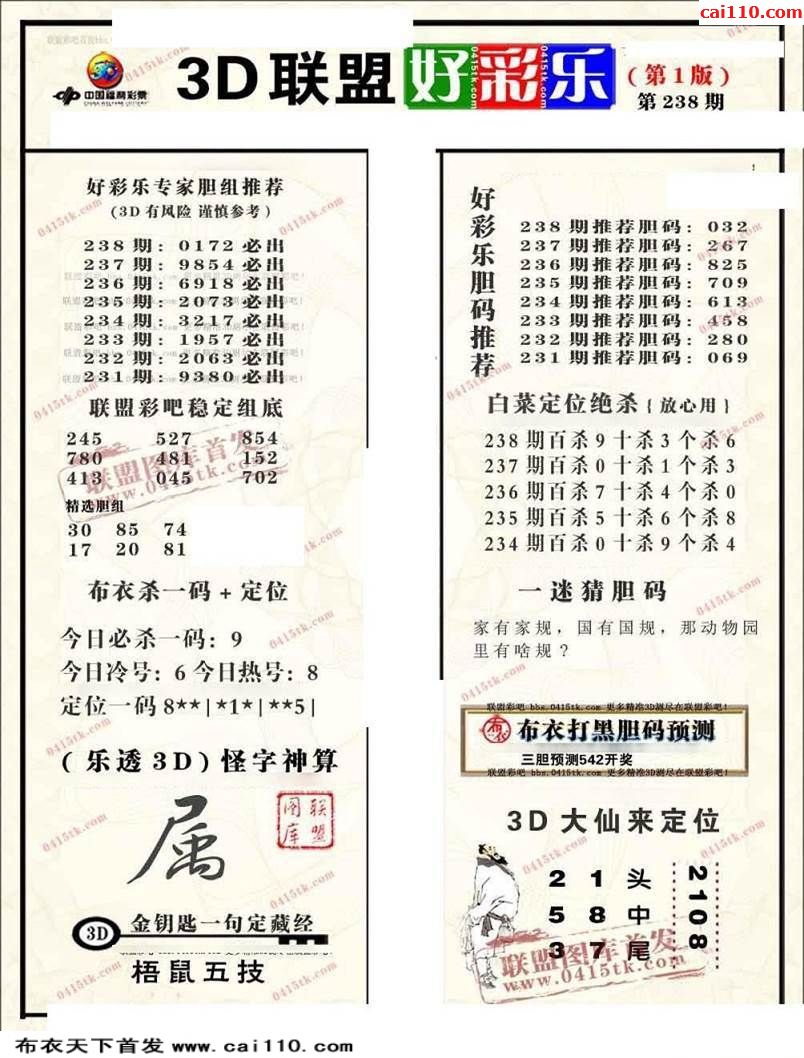 cai110.com
中国福利彩票
CHINA WELFARE LOTTERY
3D联盟好彩乐
(第1版)
第238期
好彩乐专家胆组推荐
(3D有风险 谨慎参考)
238期：0172必出
237期：9854必出
236期：6918必出
235期：2073必出
234期：3217必出
233期：1957必出
232期：2063必出
231期：9380必出
联盟彩吧稳定组底
245 527 854
780 481 152
413 045 702
联盟图库首发
www.0415tk.com
精选胆组
30 85 74
17 20 81
布衣杀一码+定位
今日必杀一码：9
今日冷号：6今日热号：8
定位一码8**|*1*|**5|
(乐透3D)怪字神算
属
联盟图库
3D
金钥匙一句定藏经
梧鼠五技
好彩乐胆码推荐
238期推荐胆码：032
237期推荐胆码：267
236期推荐胆码：825
235期推荐胆码：709
234期推荐胆码：613
233期推荐胆码：458
232期推荐胆码：280
231期推荐胆码：069
白菜定位绝杀{放心用}
238期百杀9十杀3个杀6
237期百杀0十杀1个杀3
236期百杀7十杀4个杀0
235期百杀5十杀6个杀8
234期百杀0十杀9个杀4
一迷猜胆码
家有家规，国有国规，那动物园
里有啥规？
联盟彩吧 bbs.0415tk.com 更多精准3D测尽在联盟彩吧!
布衣打黑胆码预测
三胆预测542开奖
联盟彩吧 bbs.0415tk.com 更多精准3D测尽在联盟彩吧!
3D大仙来定位
2 1 头
5 8 中
3 7 尾
2108
联盟图库首发
www.0415tk.com
布衣天下首发 www.cai110.com